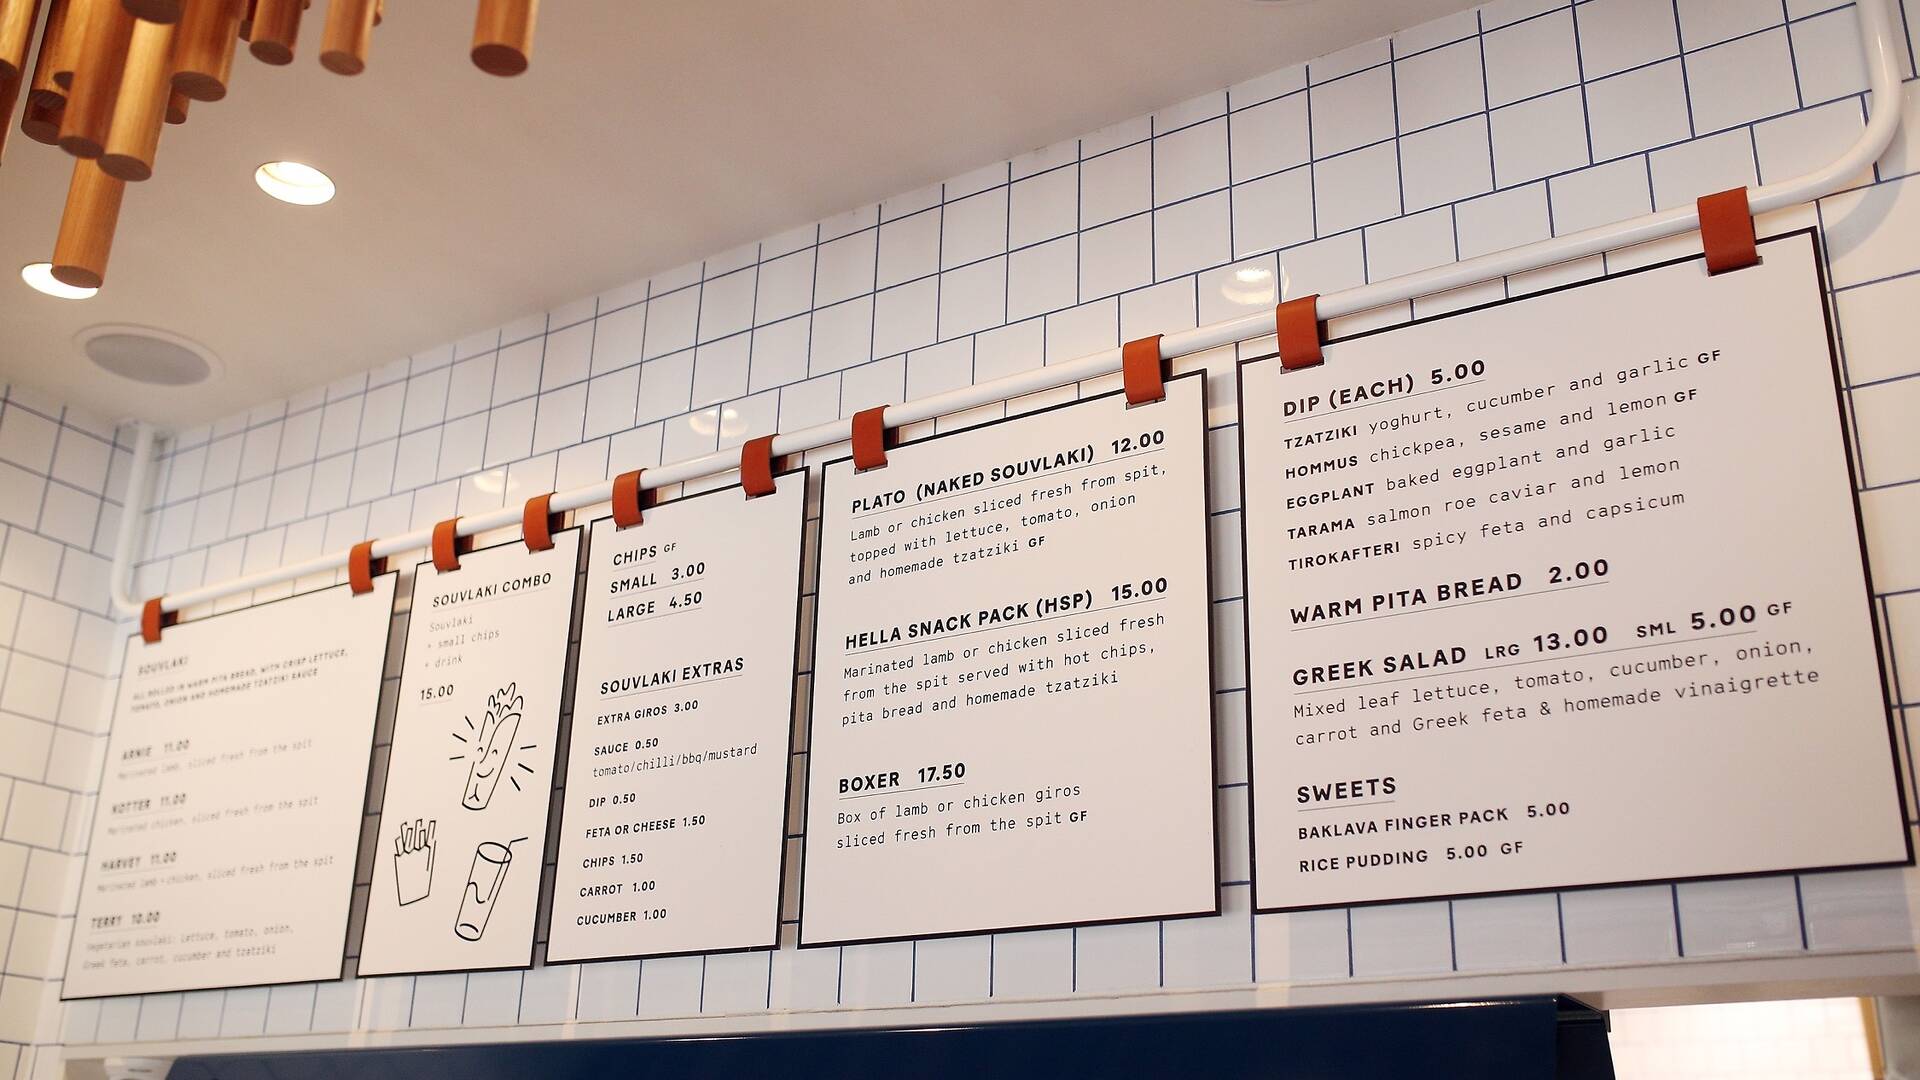 SOUVLAKI
ALL ROLLED IN WARM PITA BREAD, WITH CRISP LETTUCE,
TOMATO, ONION AND HOMEMADE TZATZIKI SAUCE
ARNIE 11.00
Marinated lamb, sliced fresh from the spit
KOTTER 11.00
Marinated chicken, sliced fresh from the spit
HARVEY 11.00
Marinated lamb + chicken, sliced fresh from the spit
TERRY 10.00
Vegetarian souvlaki: Lettuce, tomato, onion,
Greek feta, carrot, cucumber and tzatziki
SOUVLAKI COMBO
Souvlaki
+ small chips
+ drink
15.00
CHIPS GF
SMALL 3.00
LARGE 4.50
SOUVLAKI EXTRAS
EXTRA GIROS 3.00
SAUCE 0.50
tomato/chilli/bbq/mustard
DIP 0.50
FETA OR CHEESE 1.50
CHIPS 1.50
CARROT 1.00
CUCUMBER 1.00
PLATO (NAKED SOUVLAKI) 12.00
Lamb or chicken sliced fresh from spit,
topped with lettuce, tomato, onion
and homemade tzatziki GF
HELLA SNACK PACK (HSP) 15.00
Marinated lamb or chicken sliced fresh
from the spit served with hot chips,
pita bread and homemade tzatziki
BOXER 17.50
Box of lamb or chicken giros
sliced fresh from the spit GF
DIP (EACH) 5.00
TZATZIKI yoghurt, cucumber and garlic GF
HOMMUS chickpea, sesame and lemon GF
EGGPLANT baked eggplant and garlic
TARAMA salmon roe caviar and lemon
TIROKAFTERI spicy feta and capsicum
WARM PITA BREAD 2.00
GREEK SALAD LRG 13.00 SML 5.00 GF
Mixed leaf lettuce, tomato, cucumber, onion,
carrot and Greek feta & homemade vinaigrette
SWEETS
BAKLAVA FINGER PACK 5.00
RICE PUDDING 5.00 GF